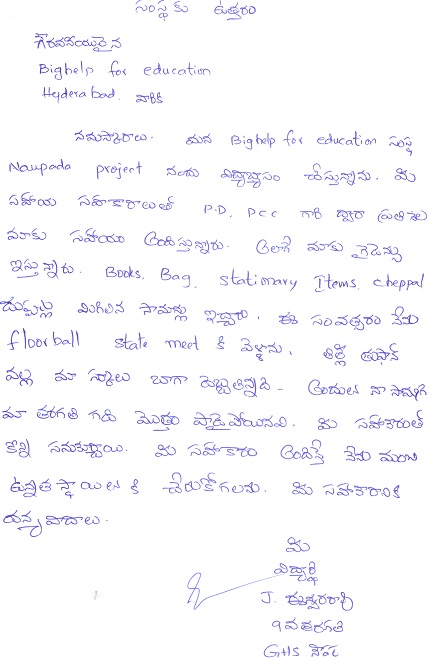 సంస్థకు ఉత్తరం
గౌరవనీయులైన
Bighelp for education
Hyderabad. వారికి
నమస్కారాలు. మన Bighelp for education సంస్థ
Naupada project నందు విద్యాభ్యాసం చేస్తున్నాను. మీ
సహాయ సహకారాలుతో P.D, PCC గారి ద్వారా ప్రతి నెల
మాకు సహాయం అందిస్తున్నారు. అలాగే మాకు గైడెన్సు
ఇస్తున్నారు. Books, Bag, stationary Items, cheppal
దుప్పట్లు మిగిలిన సామాన్లు ఇచ్చారు. ఈ సంవత్సరం నేను
floorball state meet కి వెళ్ళాను. తిత్లీ తుఫాన్
వల్ల మా స్కూలు బాగా దెబ్బతిన్నది. అందులో నా సామగ్రి
మా తరగతి గది మొత్తం పాడైపోయినవి. మీ సహకారంతో
కొన్ని సమకూర్చాయి. మీ సహకారం అందిస్తే నేను మంచి
ఉన్నత స్థాయిలకి చేరుకోగలను. మీ సహకారానికి
ధన్యవాదాలు.
మీ
విద్యార్థి
J. ఈశ్వరరావు
9వ తరగతి
GHS